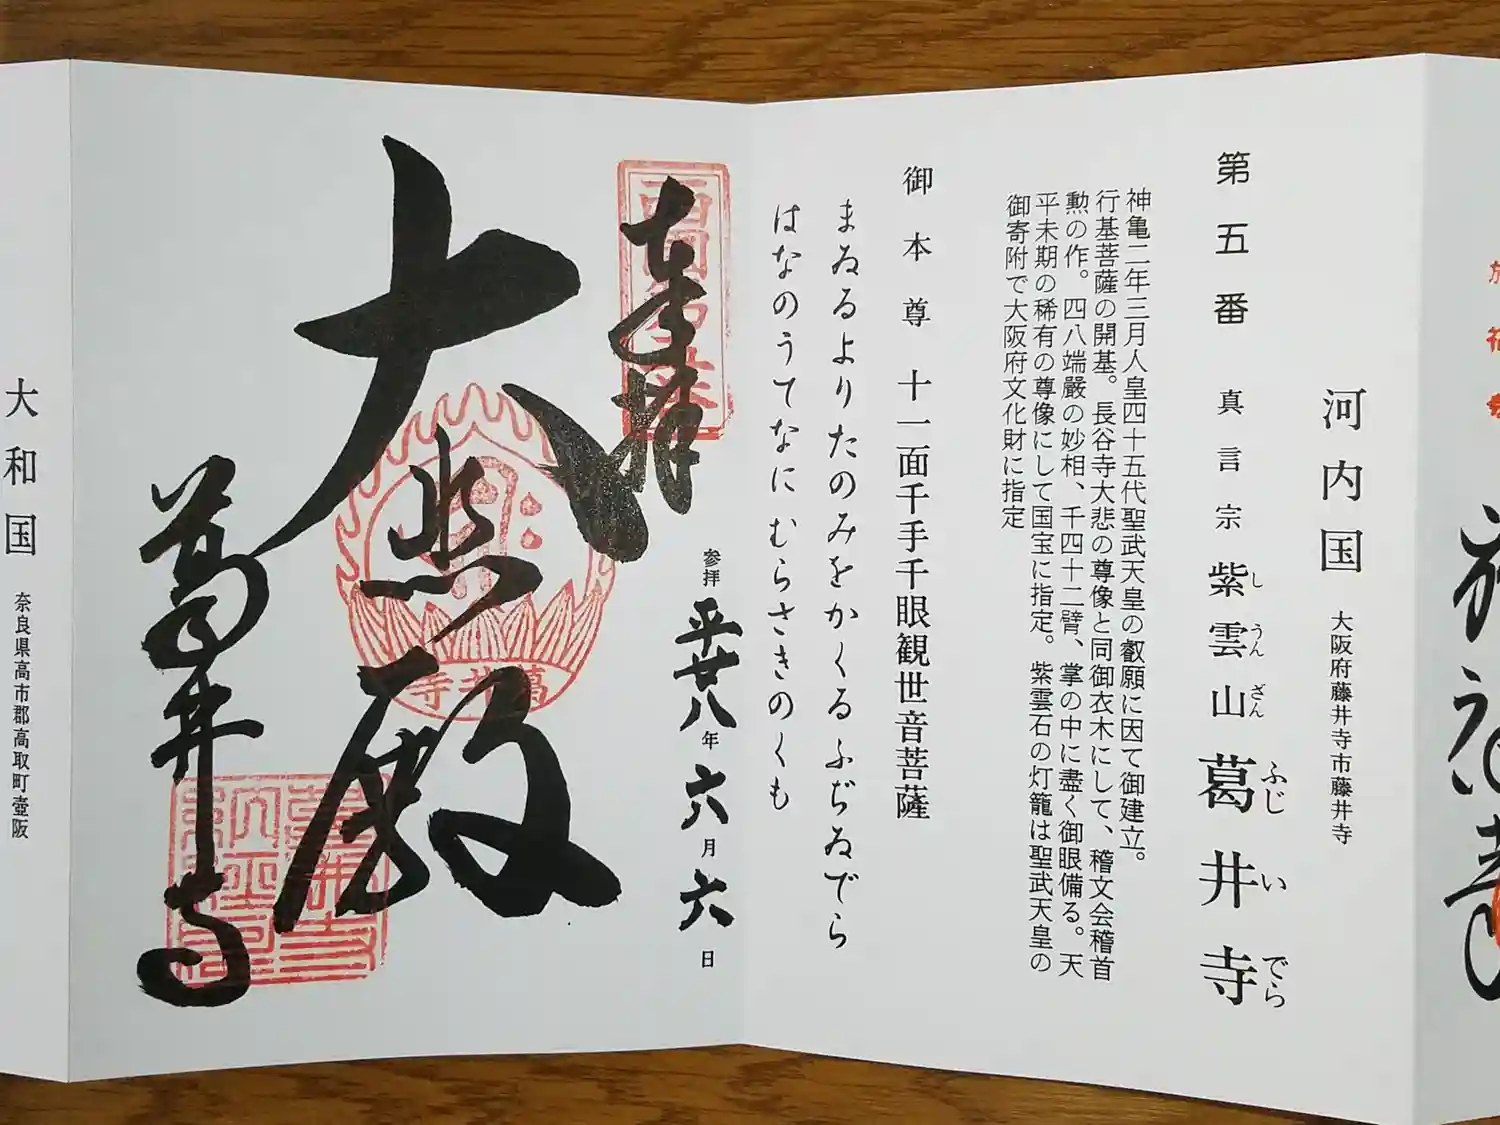 河内国 大阪府藤井寺市藤井寺
第五番 真言宗 紫雲山 葛井寺
しうんざん ふじいでら
神亀二年三月人皇四十五代聖武天皇の叡願に因て御建立。
行基菩薩の開基。長谷寺大悲の尊像と同御衣木にして、稽文会稽首
勲の作。四八端厳の妙相、千四十二臂、掌の中に盡く御眼備る。天
平末期の稀有の尊像にして国宝に指定。紫雲石の灯籠は聖武天皇の
御寄附で大阪府文化財に指定
御本尊 十一面千手千眼観世音菩薩
まゐるよりたのみをかくるふぢゐでら
はなのうてなにむらさきのくも
奉拝
参拝 平廿八年六月六日
大悲殿
葛井寺
葛井寺
大和国 奈良県高市郡高取町壷阪